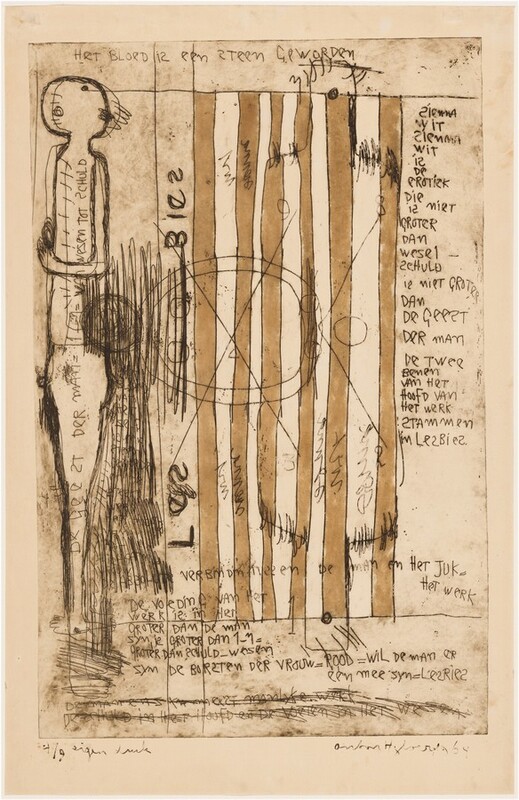 HET BLOED IZ EEN STEEN GEWORDEN
ZIENNA
WIT
ZIENNA
WIT
IZ
DE
EROTIEK
DIE
IZ NIET
GROTER
DAN
WESEL-
SCHULD
IZ NIET GROTER
DAN
DE GEEZT
DER MAN
DE TWEE
BENEN
VAN HET
HOOFD VAN
HET WERK
STAMMEN
IN LEZBIEZ
WESEN TOT SCHULD
DER MAN =
BIEZ
LEZ
DE MAN EN HET JUK =
HET WERK
DE VOEDING VAN HET
WERK IZ IN HET
GROTER DAN DE MAN
SYN IZ GROTER DAN 1-1 =
GROTER DAN SCHULD = WESEN
SYN DE BORZTEN DER VROUW = ROOD = WIL DE MAN ER
EEN MEE SYN = LEZBIEZ
eigen druk